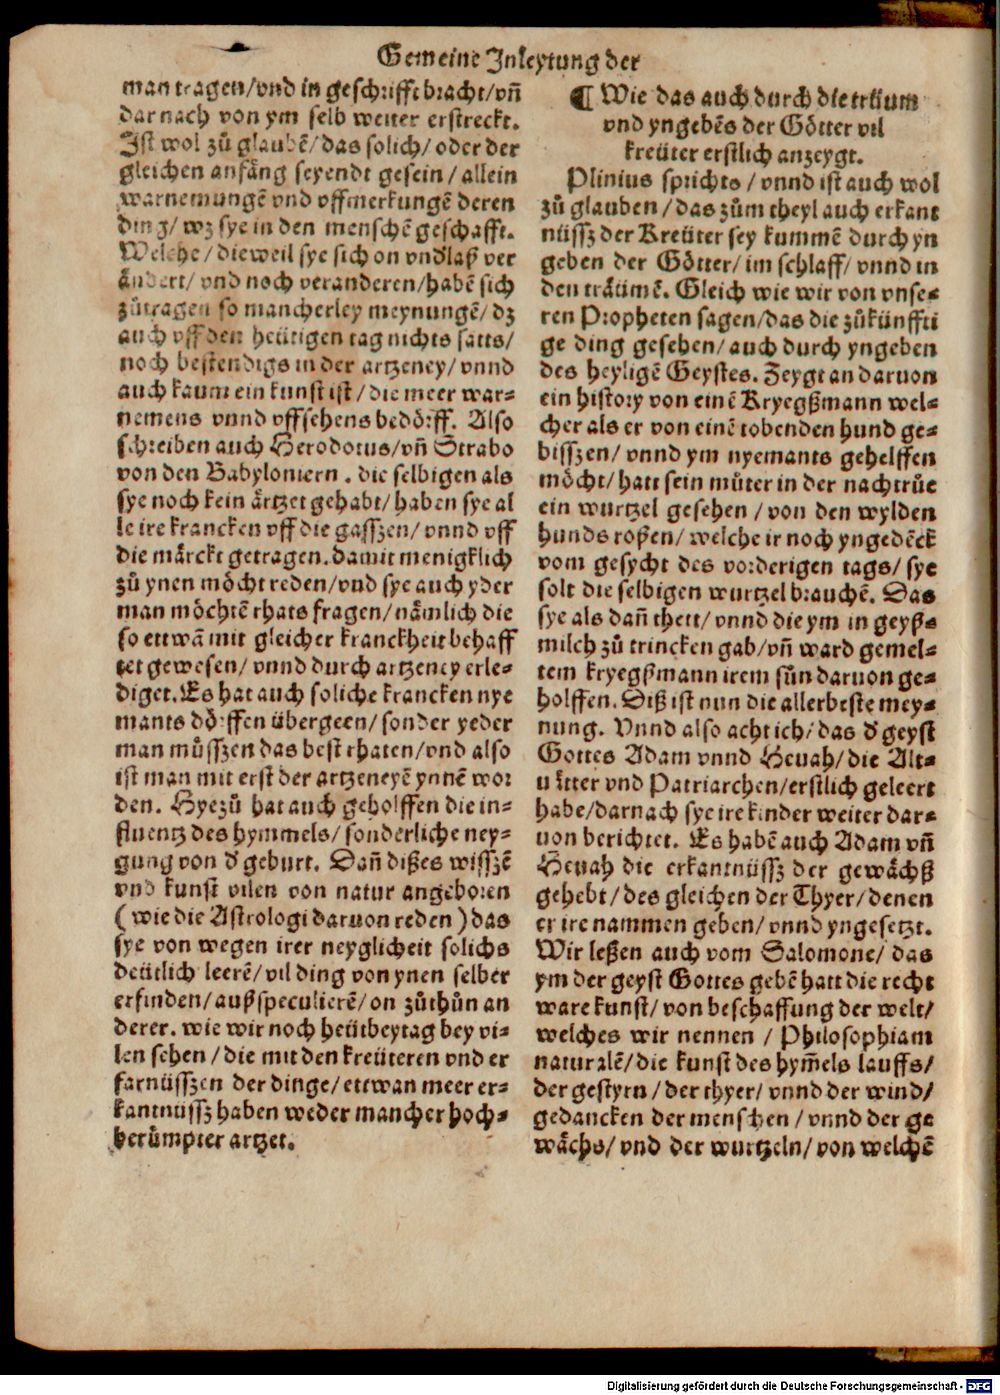 Gemeine Inleytung der
man tragen/vnd in geschrifft bracht/vñ
dar nach von ym selb weiter erstreckt.
Ist wol zů glaubē/das solich/oder der
gleichen anfäng seyendt gesein/allein
warnemungē vnd vffmerkungē deren
ding/wz sye in den menschē geschafft.
Welche/dieweil sye sich on vndlaß ver
ändert/vnd noch veranderen/habē sich
zůtragen so mancherley meynungē/dz
auch vff den heütigen tag nichts satts/
noch bestendigs in der artzeney/vnnd
auch kaum ein kunst ist/die meer war-
nemens vnnd vffsehens bedörff. Also
schreiben auch Herodotus/vñ Strabo
von den Babyloniern. die selbigen als
sye noch kein ärtzet gehabt/haben sye al
le ire krancken vff die gasszen/vnnd vff
die märckt getragen. damit menigklich
zů ynen möcht reden/vnd sye auch yder
man möchtē rhats fragen/nämlich die
so ettwā mit gleicher kranckheit behaff
tet gewesen/vnnd durch artzeney erle-
diget. Es hat auch soliche krancken nye
mants dörffen übergeen/sonder yeder
man můsszen das best rhaten/vnd also
ist man mit erst der artzeneyē ynnē wor
den. Hyezů hat auch geholffen die in-
fluentz des hymmels/sonderliche ney-
gung von ď geburt. Dañ dißes wisszē
vnd kunst vilen von natur angeboren
(wie die Astrologi daruon reden) das
sye von wegen irer neyglicheit solichs
deütlich leerē/vil ding von ynen selber
erfinden/außspeculierē/on zůthůn an
derer. wie wir noch heütbeytag bey vi-
len sehen/die mit den kreüteren vnd er
farnüsszen der dinge/ettwan meer er-
kantnüssz haben weder mancher hoch-
berümpter artzet.
¶ Wie das auch durch die träum
vnd yngebēs der Götter vil
kreüter erstlich anzeygt.
Plinius sprichts/vnnd ist auch wol
zů glauben/das zům theyl auch erkant
nüssz der Kreüter sey kummē durch yn
geben der Götter/im schlaff/vnnd in
den träümē. Gleich wie wir von vnse-
ren Propheten sagen/das die zůkünffti
ge ding gesehen/auch durch yngeben
des heyligē Geystes. Zeygt an daruon
ein history von einē Kryegßmann wel-
cher als er von einē tobenden hund ge-
bisszen/vnnd ym nyemants gehelffen
möcht/hatt sein můter in der nacht růe
ein wurtzel gesehen/von den wylden
hunds roßen/welche ir noch yngedēck
vom gesycht des vorderigen tags/sye
solt die selbigen wurtzel brauchē. Das
sye als dañ thett/vnnd die ym in geyß-
milch zů trincken gab/vñ ward gemel-
tem kryegßmann irem sůn daruon ge-
holffen. Diß ist nun die allerbeste mey-
nung. Vnnd also acht ich/das ď geyst
Gottes Adam vnnd Heuah/die Alt-
uätter vnd Patriarchen/erstlich geleert
habe/darnach sye ire kinder weiter dar-
uon berichtet. Es habē auch Adam vñ
Heuah die erkantnüssz der gewächß
gehebt/des gleichen der Thyer/denen
er ire nammen geben/vnnd yngesetzt.
Wir leßen auch vom Salomone/das
ym der geyst Gottes gebē hatt die recht
ware kunst/von beschaffung der welt/
welches wir nennen/Philosophiam
naturalē/die kunst des hym̄els lauffs/
der gestyrn/der thyer/vnnd der wind/
gedancken der menschen/vnnd der ge
wächs/vnd der wurtzeln/von welchē
Digitalisierung gefördert durch die Deutsche Forschungsgemeinschaft - DFG